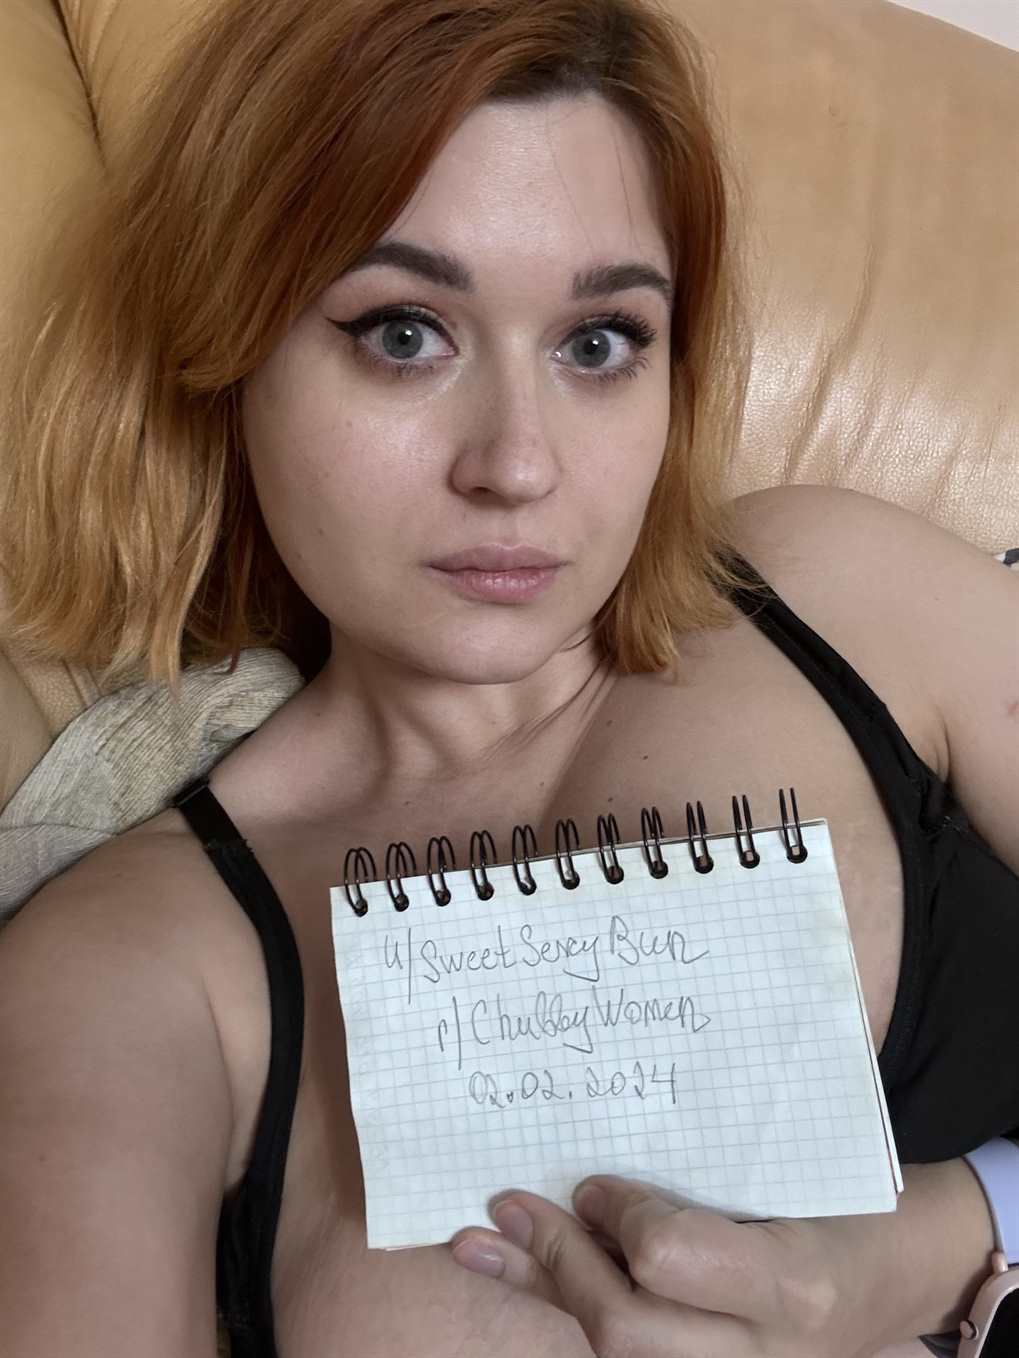 u/SweetSexyBun
r/ChubbyWomen
02.02.2024